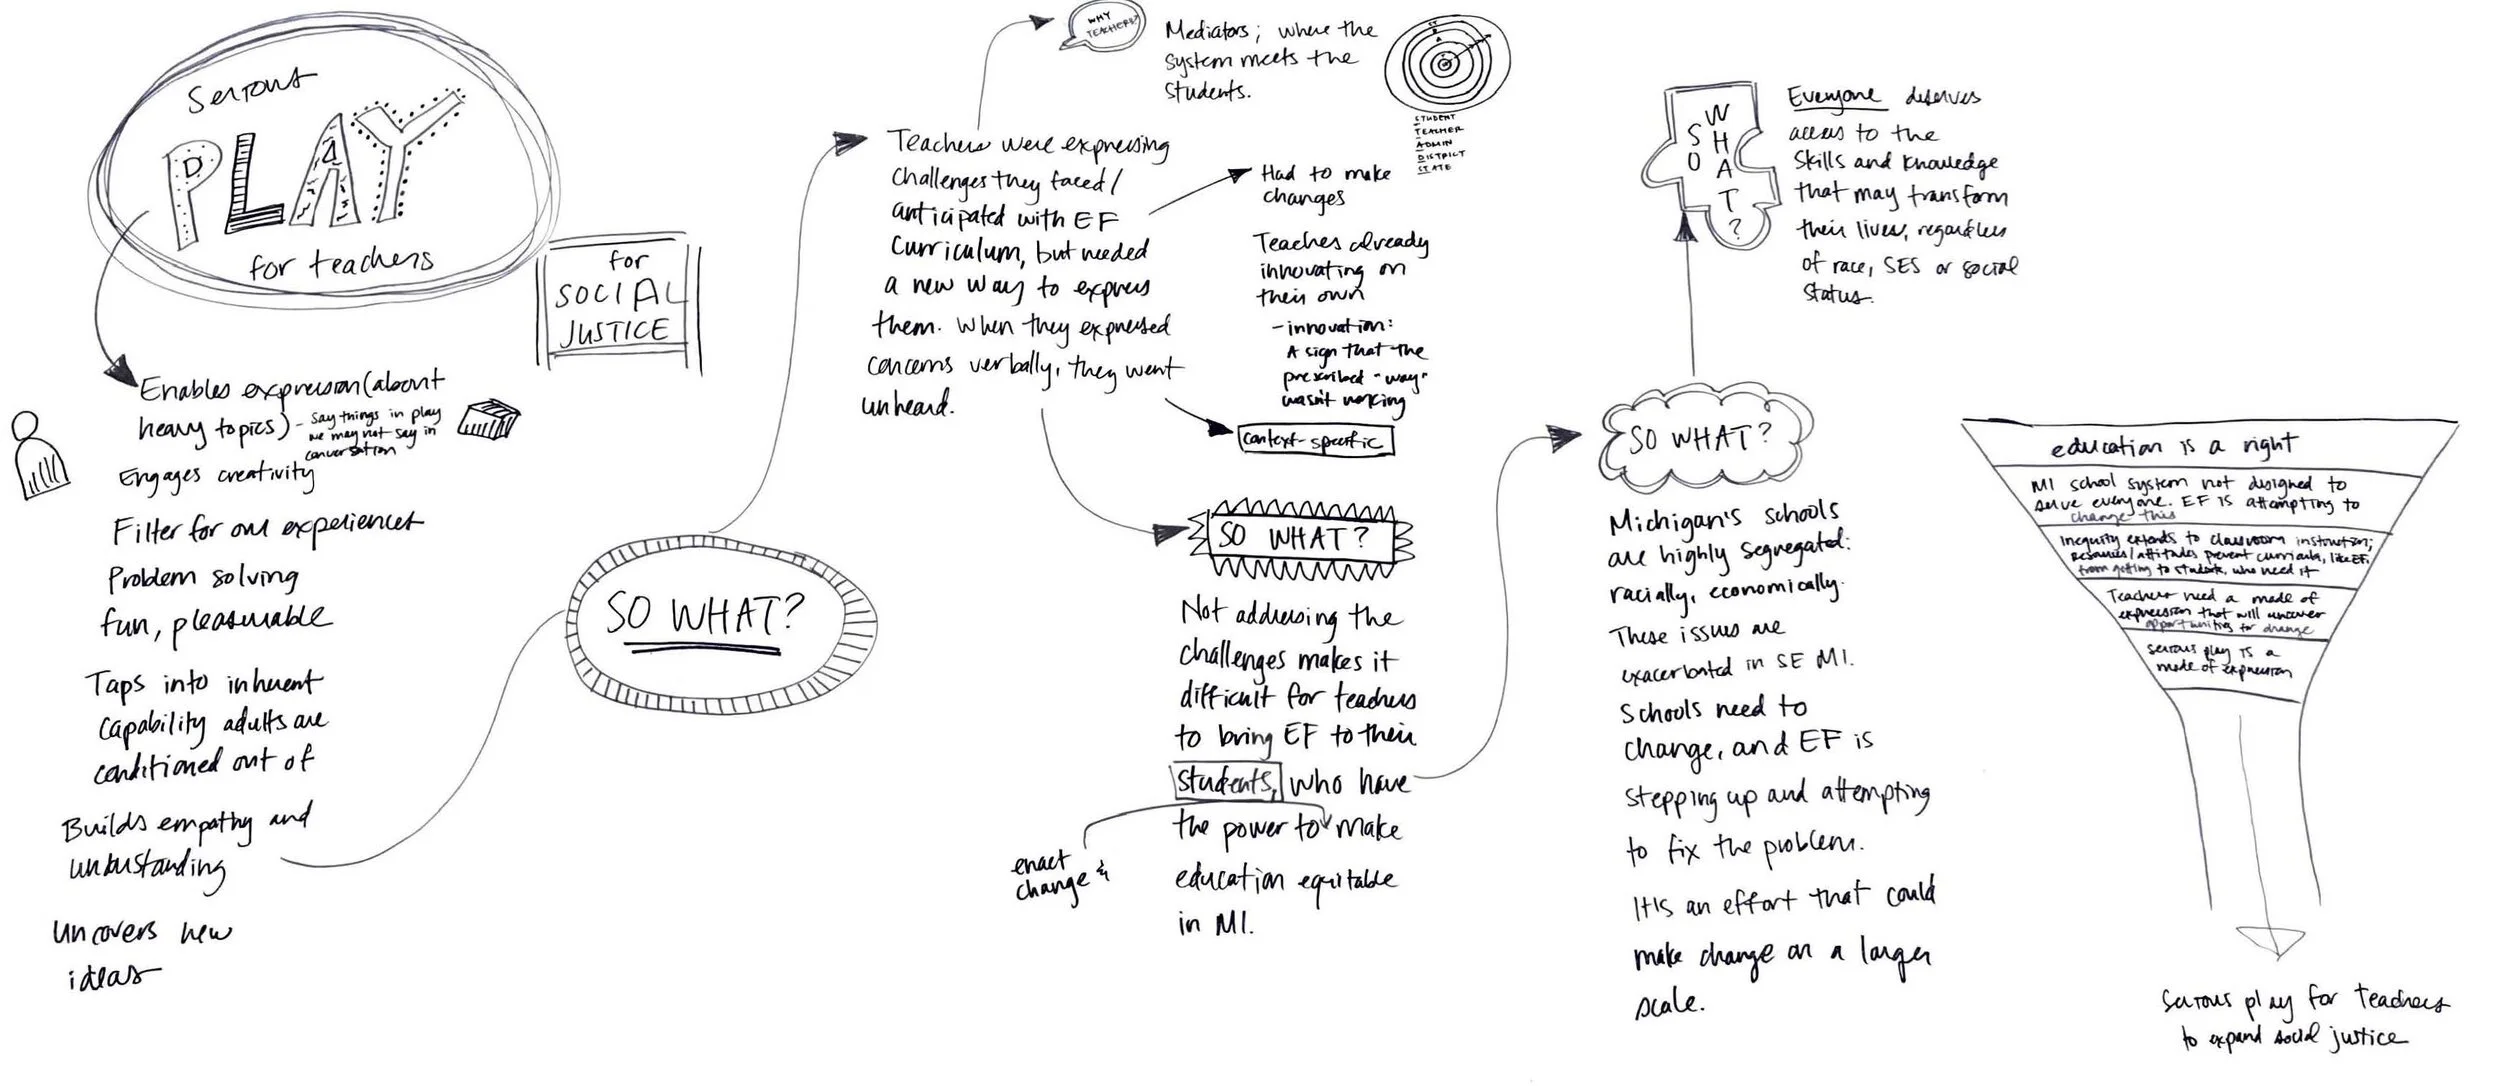 Serious
PLAY
for teachers
for
SOCIAL
JUSTICE
Enables expression (about
heavy topics) - Say things in play
we may not say in
conversation
Engages creativity
Filter for our experiences
Problem solving
fun, pleasurable
Taps into inherent
capability adults are
conditioned out of
Builds empathy and
understanding
uncovers new
ideas
SO WHAT?
WHY
TEACHERS?
Mediators; where the
system meets the
students.
STUDENT
TEACHER
ADMIN
DISTRICT
STATE
Teachers were expressing
challenges they faced/
anticipated with EF
curriculum, but needed
a new way to express
them. When they expressed
concerns verbally, they went
unheard.
Had to make
changes
Teaches already
innovating on
their own
- innovation:
A sign that the
prescribed "way"
wasn't working
context-specific
SO WHAT?
Not addressing the
challenges makes it
difficult for teachers
to bring EF to their
students, who have
the power to make
enact
change &
education equitable
in MI.
SO WHAT?
Michigan's schools
are highly segregated:
racially, economically.
These issues are
exacerbated in SE MI.
Schools need to
change, and EF is
stepping up and attempting
to fix the problem.
It is an effort that could
make change on a larger
scale.
SO
WHAT?
Everyone deserves
access to the
skills and knowledge
that may transform
their lives, regardless
of race, SES or social
status.
education is a right
MI school system not designed to
serve everyone. EF is attempting to
change this
Inequity extends to classroom instruction;
resources/attitudes prevent curricula, like EF,
from getting to students, who need it
Teachers need a mode of
expression that will uncover
opportunities for change
serious play is a
mode of expression
Serious play for teachers
to expand social justice